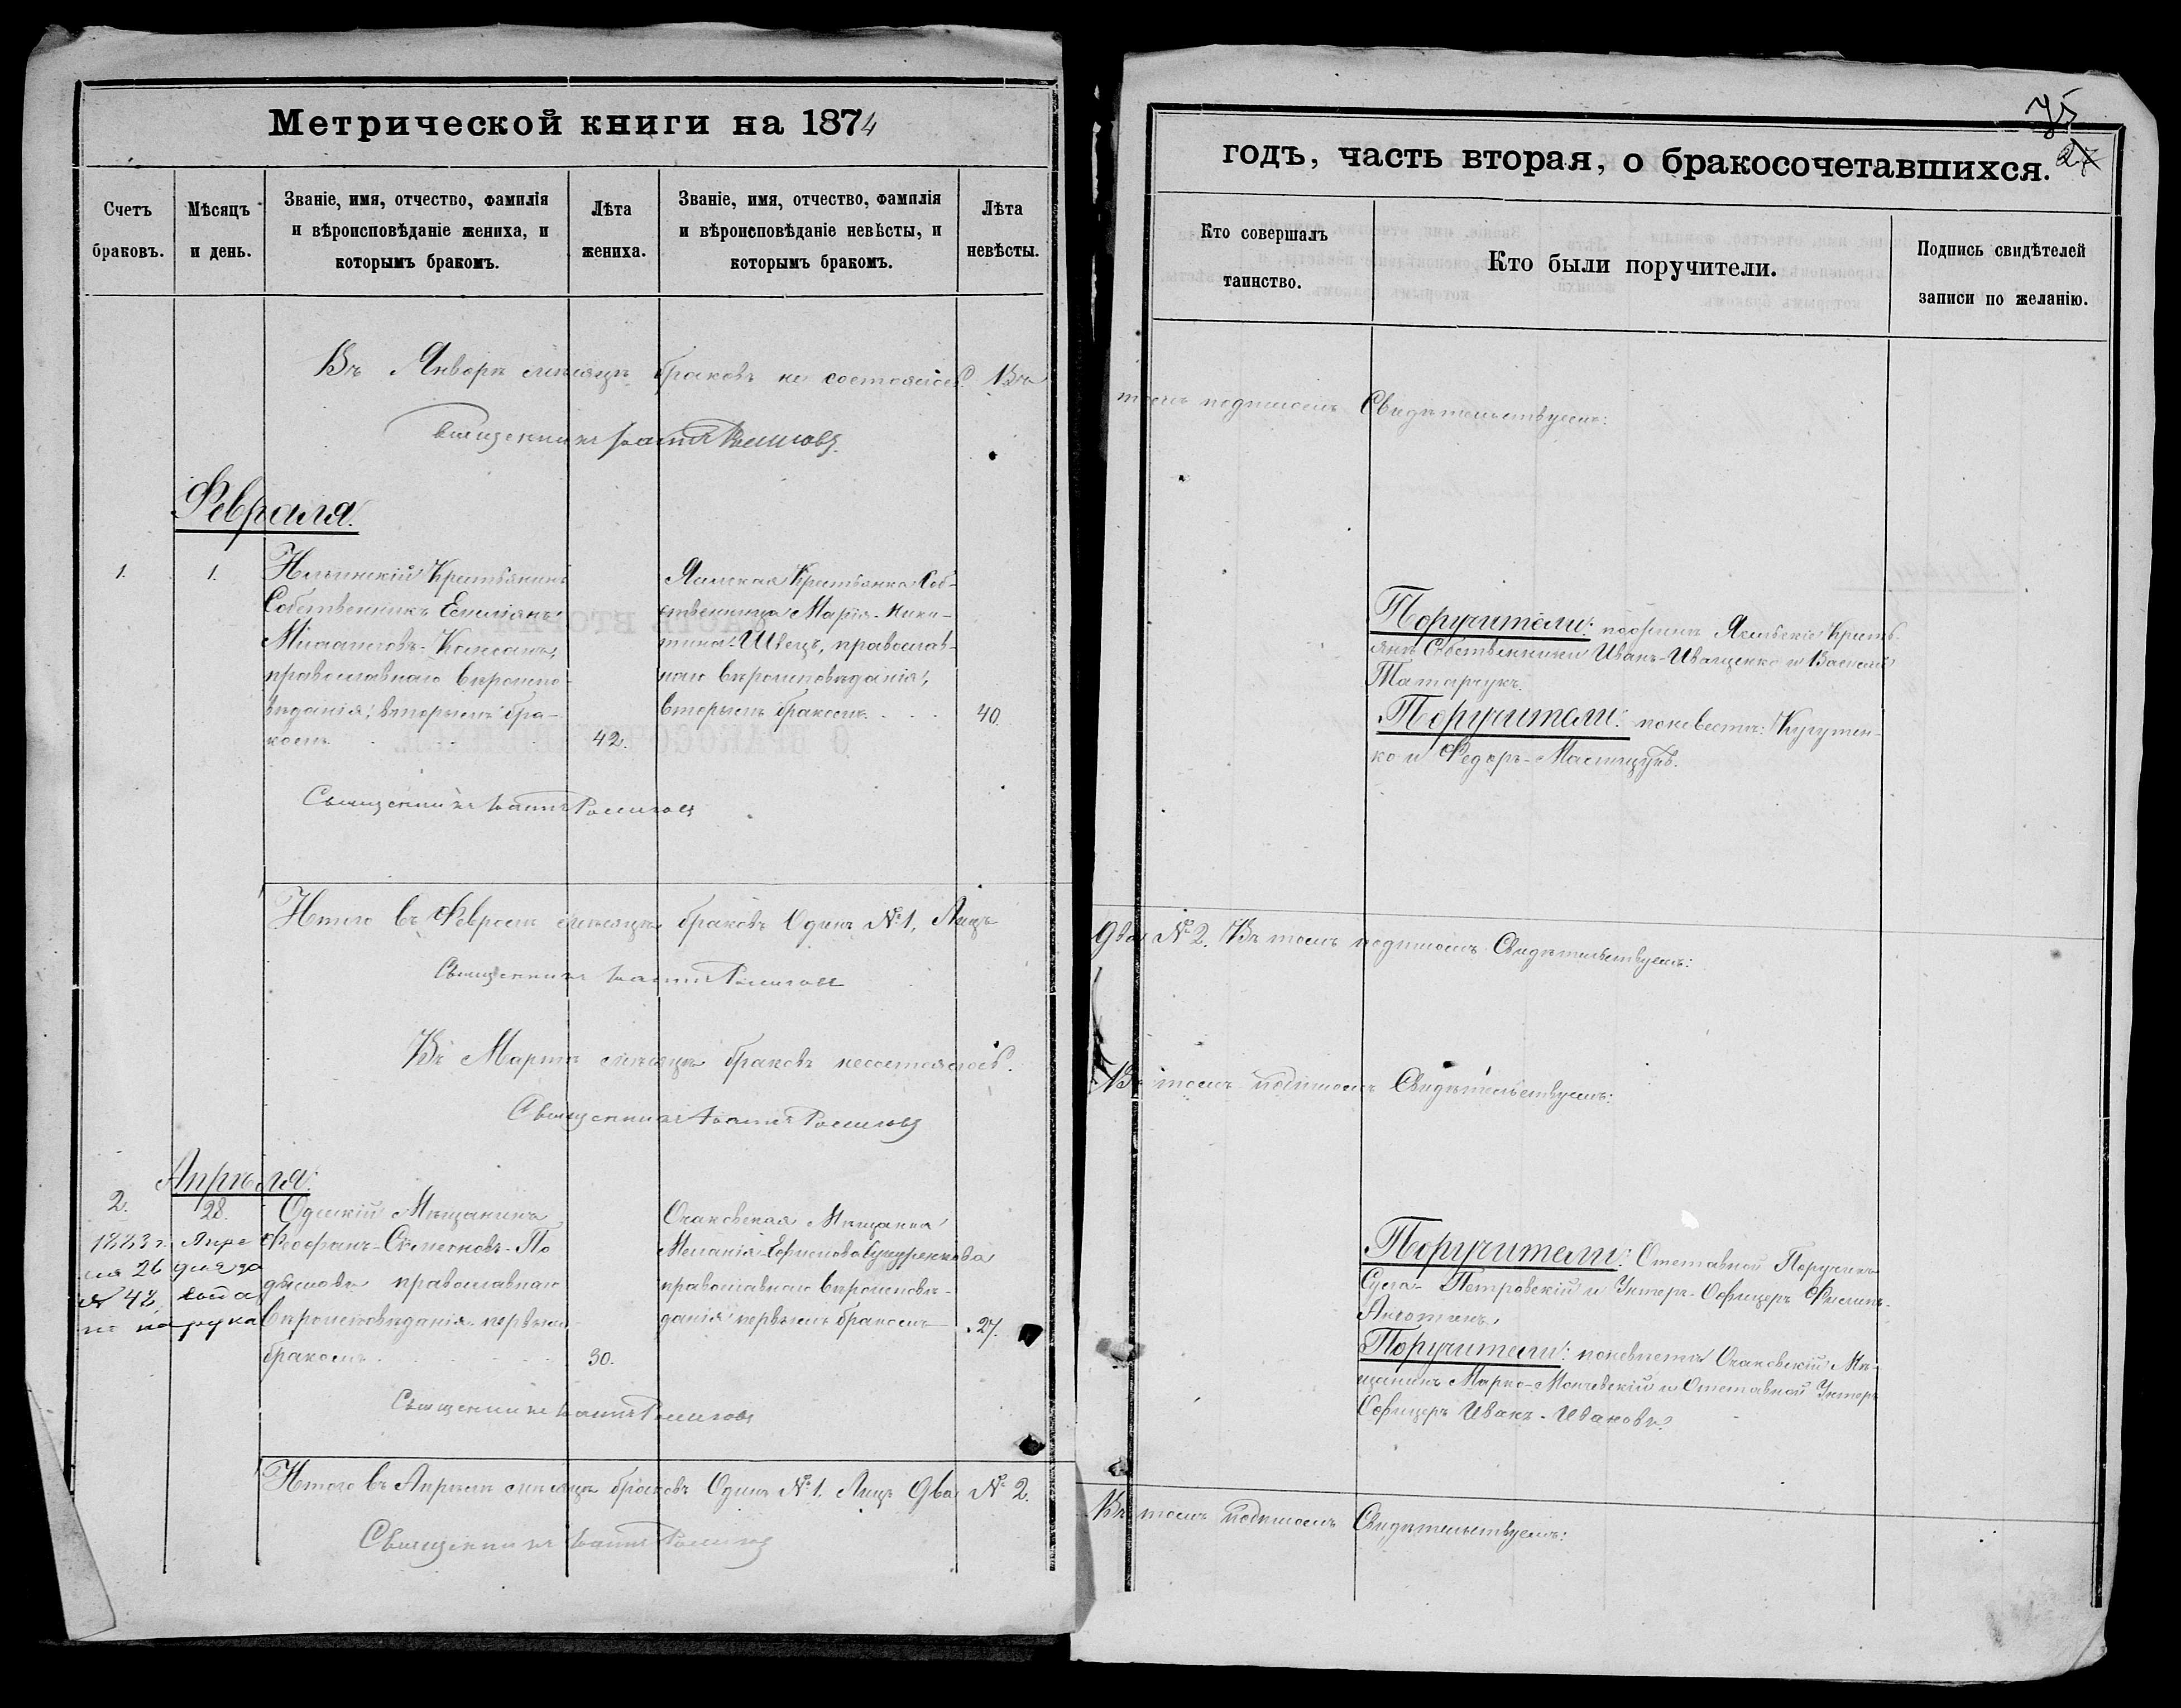 Метрической книги на 1874
Счетъ браковъ.
Мѣсяцъ и день.
Званіе, имя, отчество, фамилія
и вѣроисповѣданіе жениха, и
которымъ бракомъ.
Лѣта жениха.
Званіе, имя, отчество, фамилія
и вѣроисповѣданіе невѣсты, и
которымъ бракомъ.
Лѣта невѣсты.
Въ Январѣ мѣсяцѣ браковъ не состоялось. Въ
Священникъ
Февраля.
1.
1.
Крестьянинъ
Собственникъ Емиліанъ
православнаго вѣроиспо-
вѣданія, вторымъ бра-
комъ
42.
Крестьянка Соб-
ственница Марія Ники-
тина Швецъ, православ-
наго вѣроисповѣданія,
вторымъ бракомъ
40.
Священникъ
Итого въ Февралѣ мѣсяцѣ браковъ Одинъ № 1, Лицъ
Священникъ
Въ Мартѣ мѣсяцѣ браковъ не состоялось.
Священникъ
Апрѣля:
2.
28.
1883 г. Апрѣ
ля 26 дня за
№ 42,
на руки
Одескій Мѣщанинъ
Феофанъ
православнаго
вѣроисповѣданія первымъ
бракомъ
30.
Очаковская Мѣщанка
Меланія Ефимова
православнаго вѣроисповѣ-
данія первымъ бракомъ
27.
Священникъ
Итого въ Апрѣлѣ мѣсяцѣ браковъ Одинъ № 1. Лицъ Два № 2.
Священникъ
годъ, часть вторая, о бракосочетавшихся.
27
Кто совершалъ таинство.
Кто были поручители.
Подпись свидѣтелей записи по желанію.
томъ подписомъ Свидѣтельствуемъ:
Поручители: Кресть-
яне Собственники Иванъ Иващенко и Василій
Татарчукъ.
Поручители: по невѣстѣ:
ко и Федоръ
Два № 2. Въ томъ подписомъ Свидѣтельствуемъ:
Въ томъ подписомъ Свидѣтельствуемъ:
Поручители: Отставной Поручикъ
Петровскій и Унтеръ-Офицеръ Филипъ
Поручители: по невѣстѣ Очаковскій Мѣ-
щанинъ Марко и Отставной Унтеръ
Офицеръ Иванъ Ивановъ.
Въ томъ подписомъ Свидѣтельствуемъ: